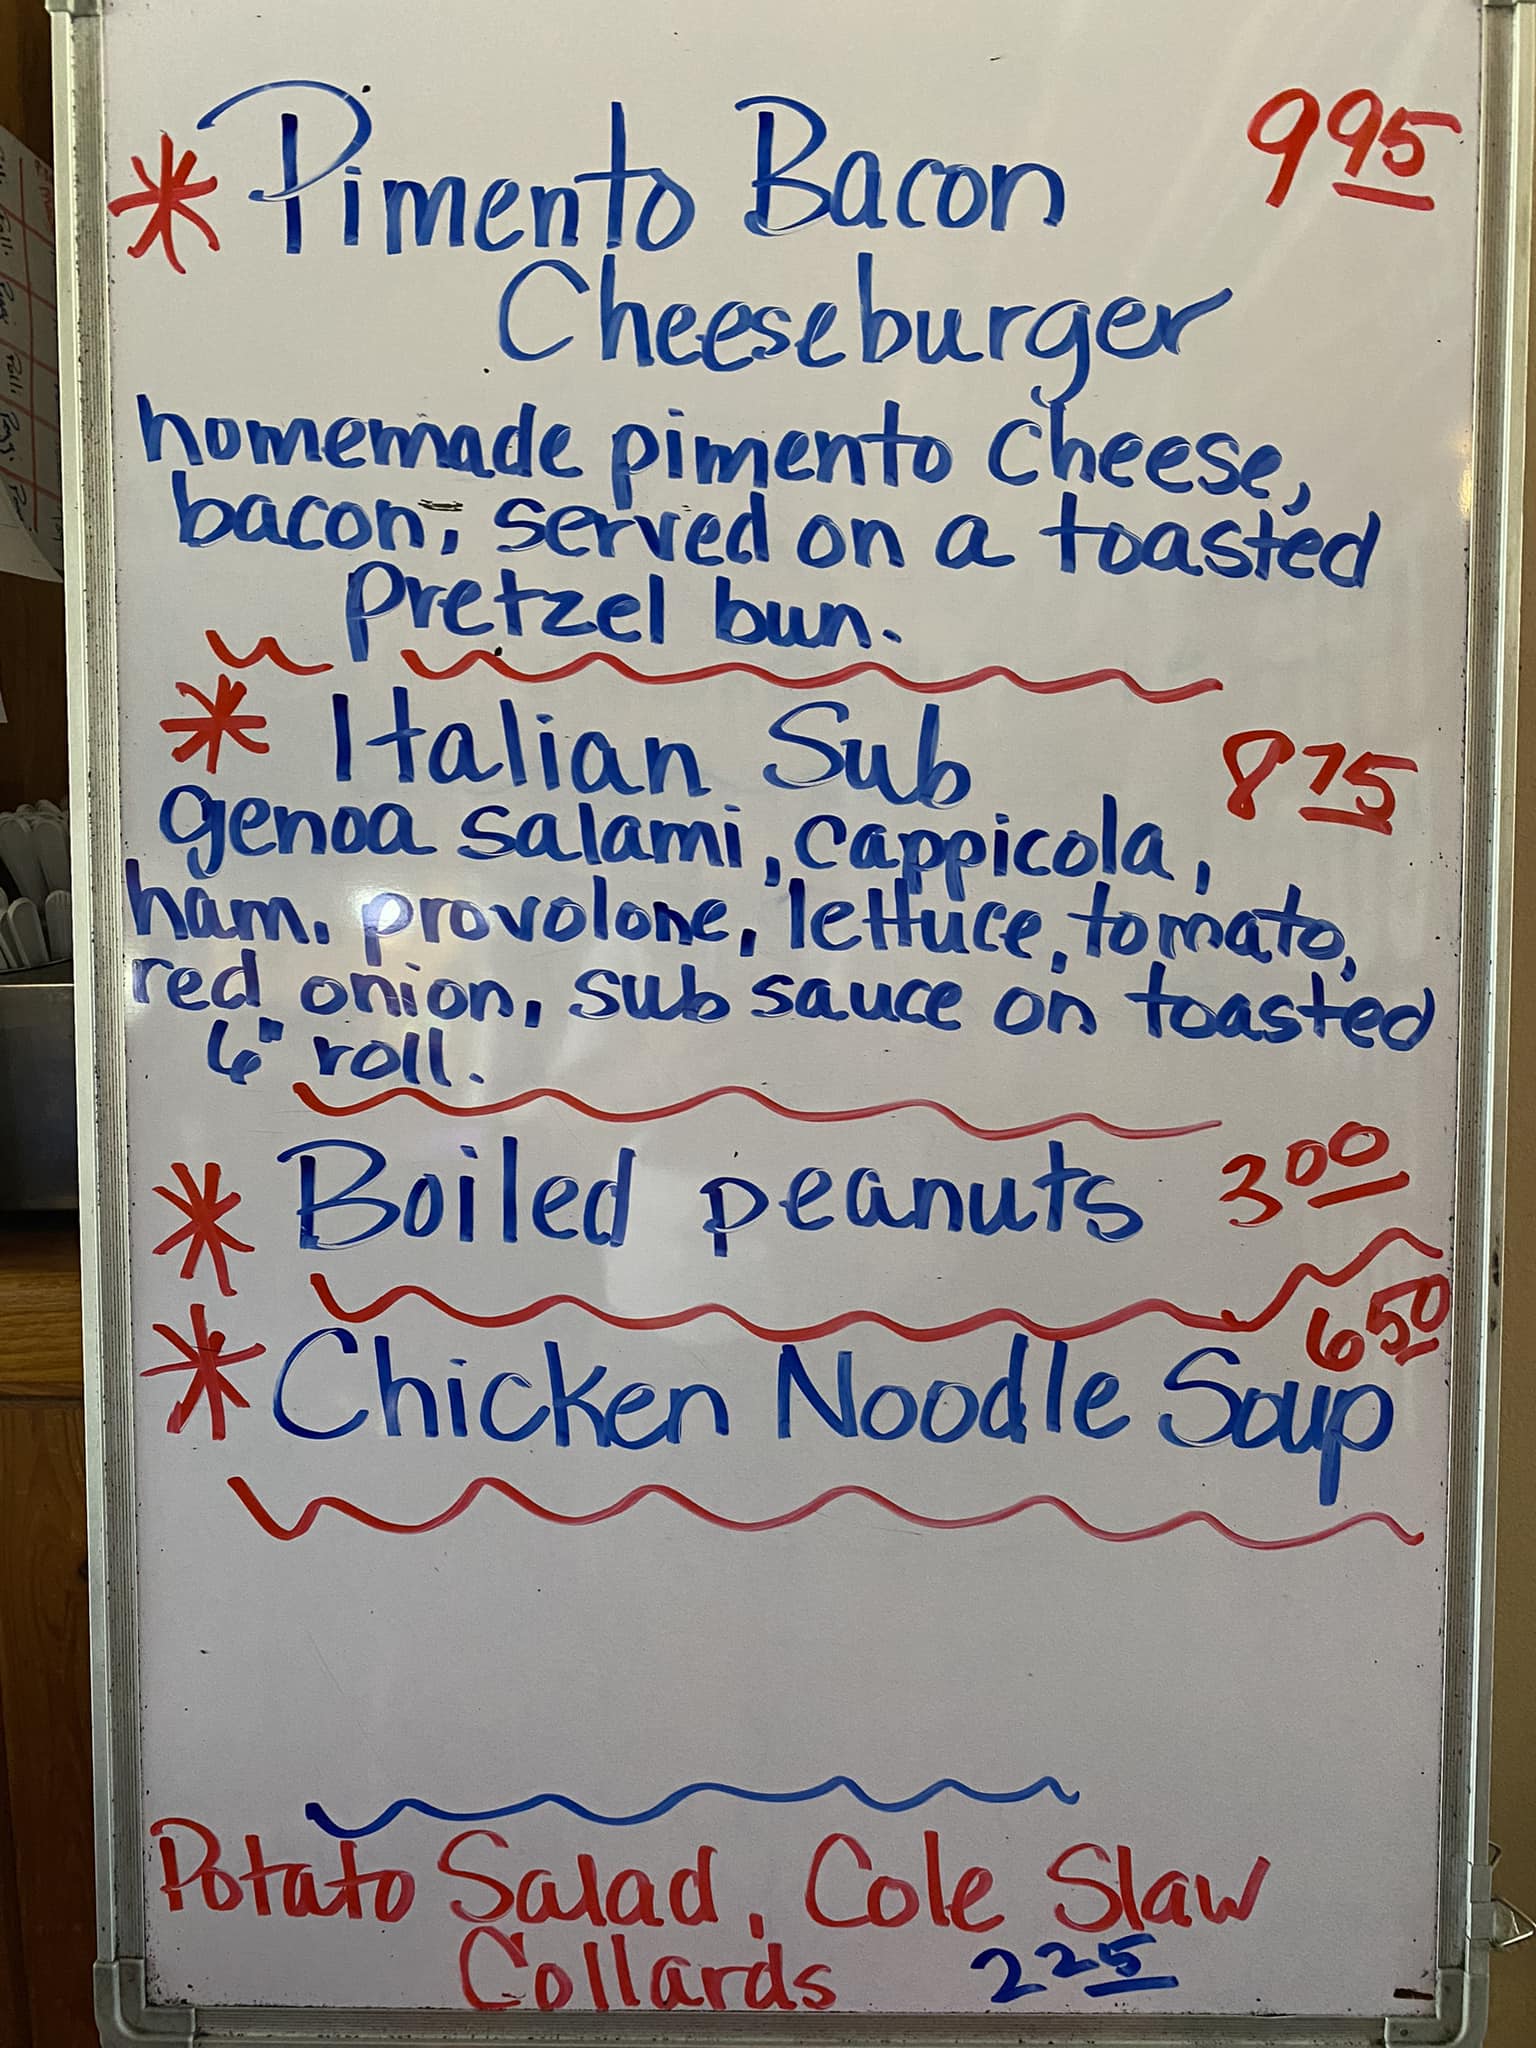 * Pimento Bacon 9 95
Cheeseburger
homemade pimento cheese,
bacon, served on a toasted
pretzel bun.
* Italian Sub 8 75
genoa salami, cappicola,
ham, provolone, lettuce, tomato,
red onion, sub sauce on toasted
6" roll.
* Boiled peanuts 3 00
6 50
* Chicken Noodle Soup
Potato Salad, Cole Slaw
Collards 2 25